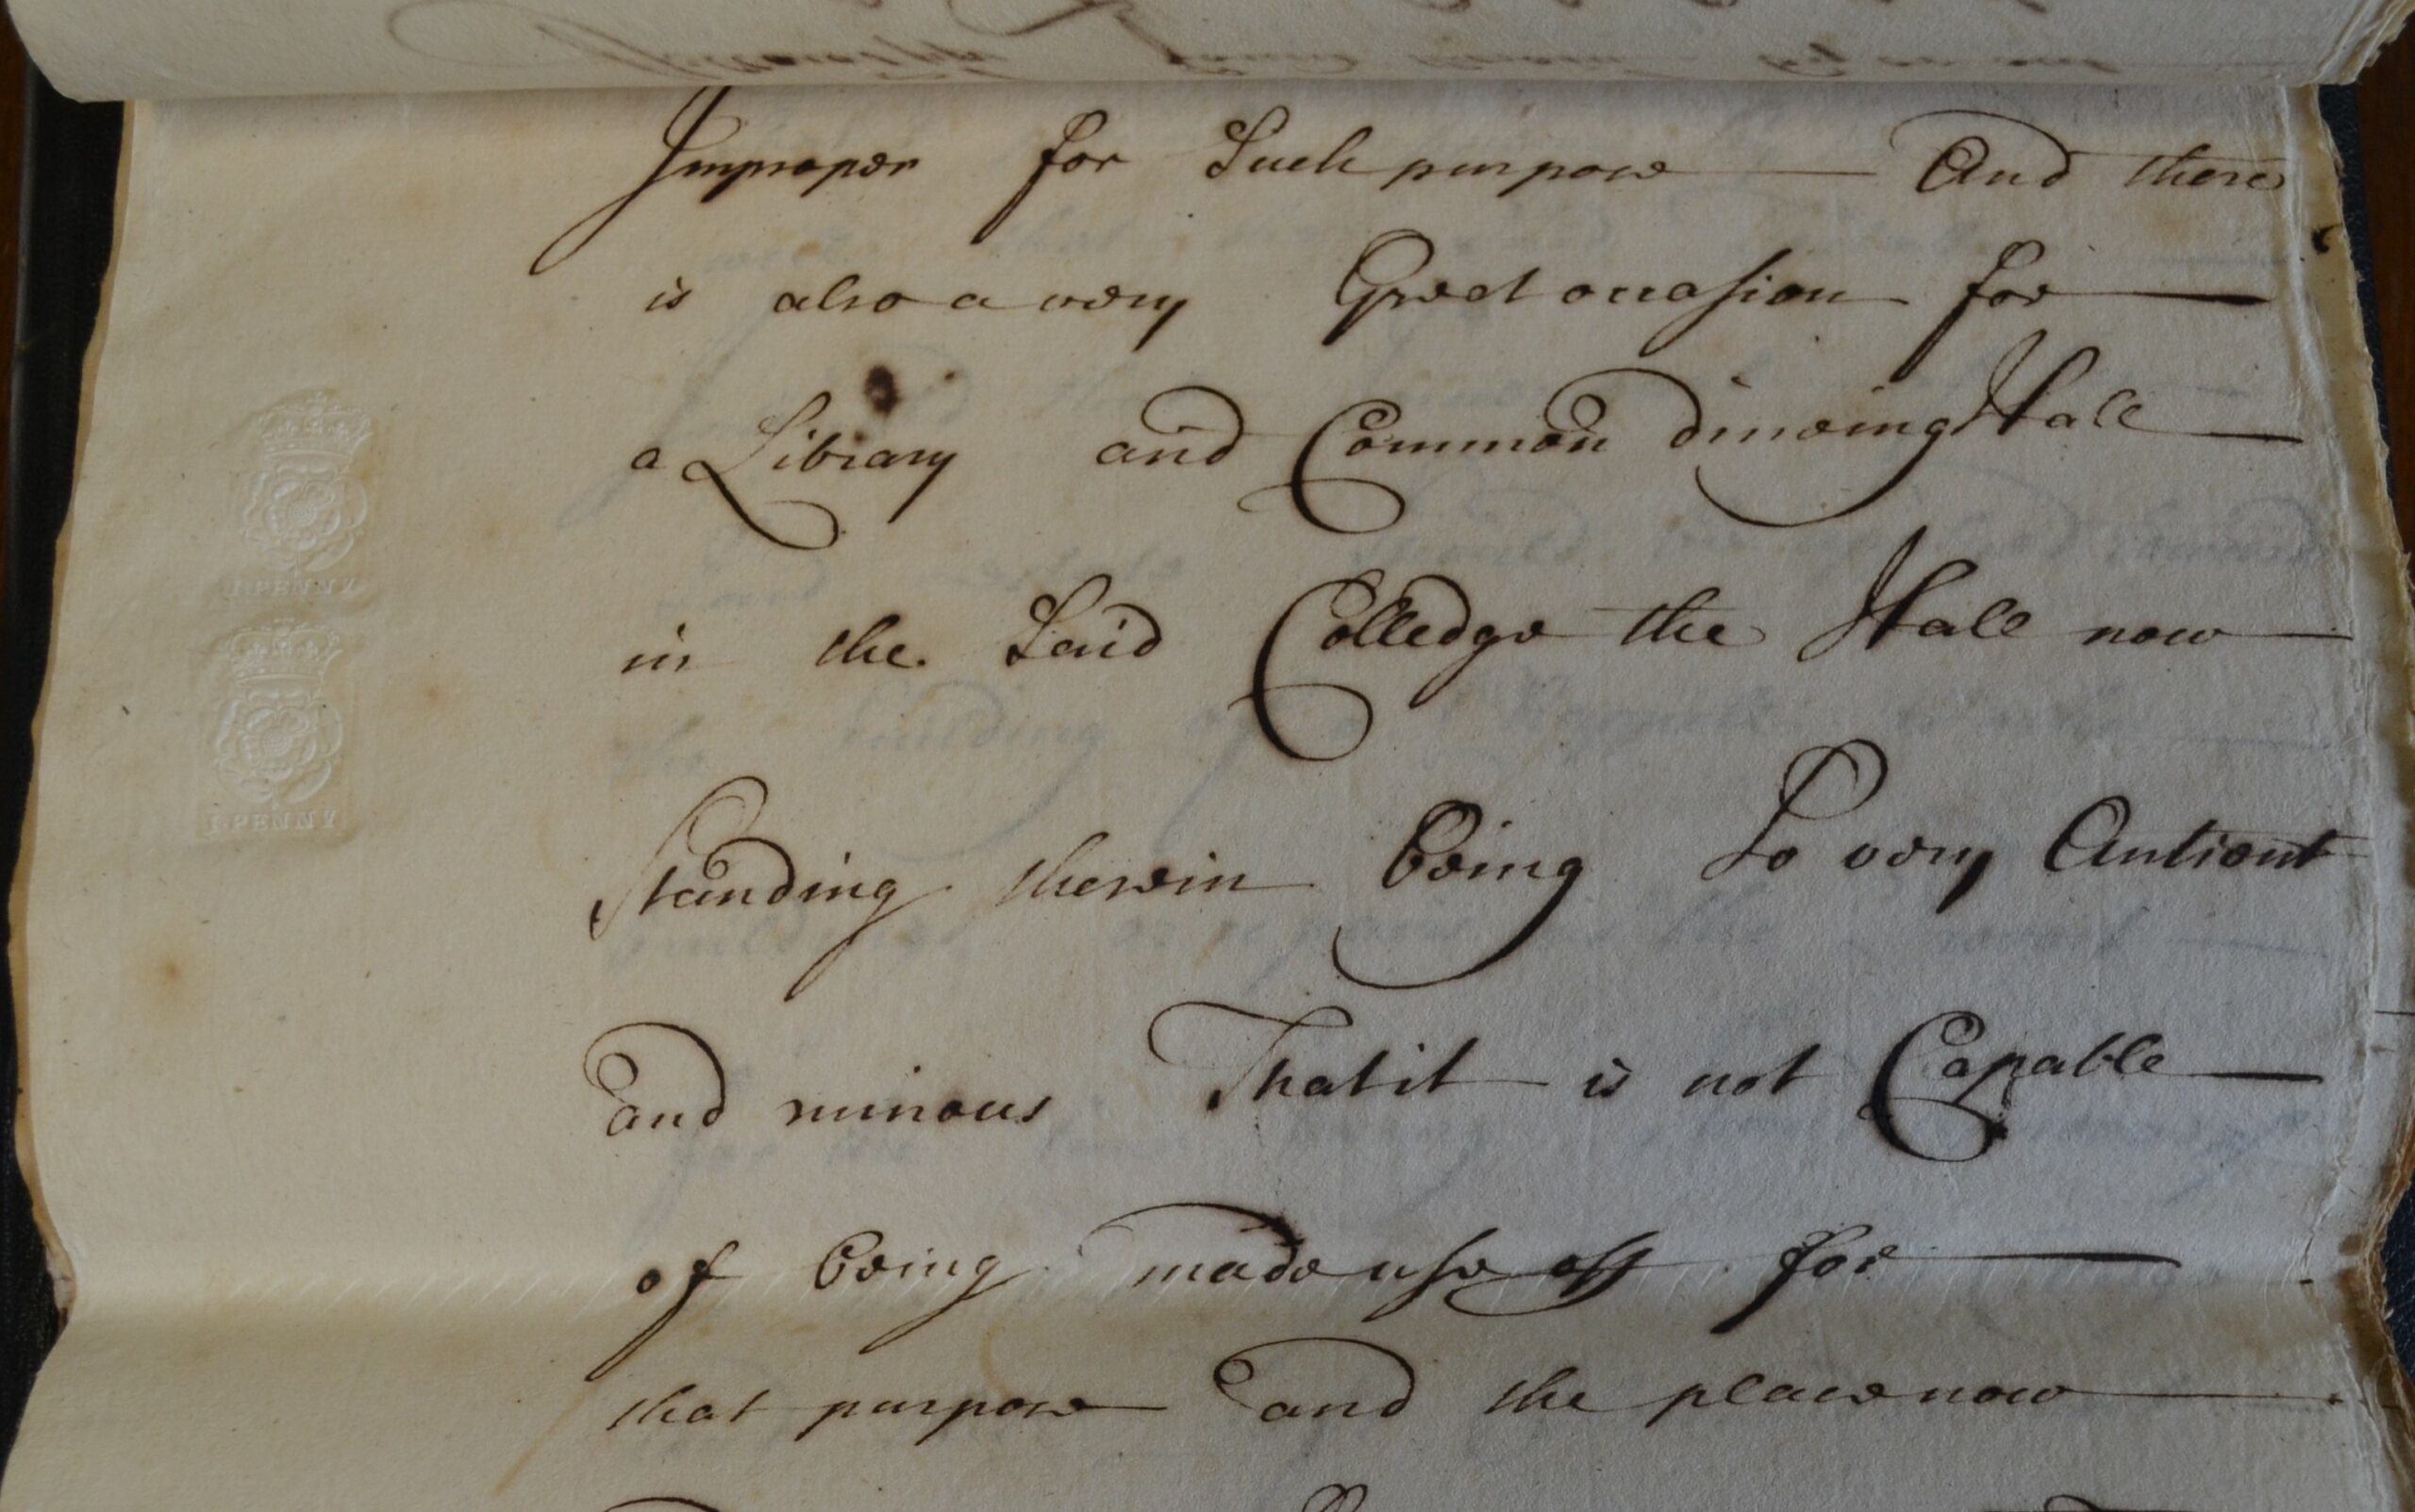 Improper for Such purpose And there
is also a very Great occasion for
a Library and Common dineing Hall
in the Said Colledge the Hall now
Standing therein being So very Antient
and ruinous That it is not Capable
of being made use off for
that purpose and the place now
I PENNY
I PENNY